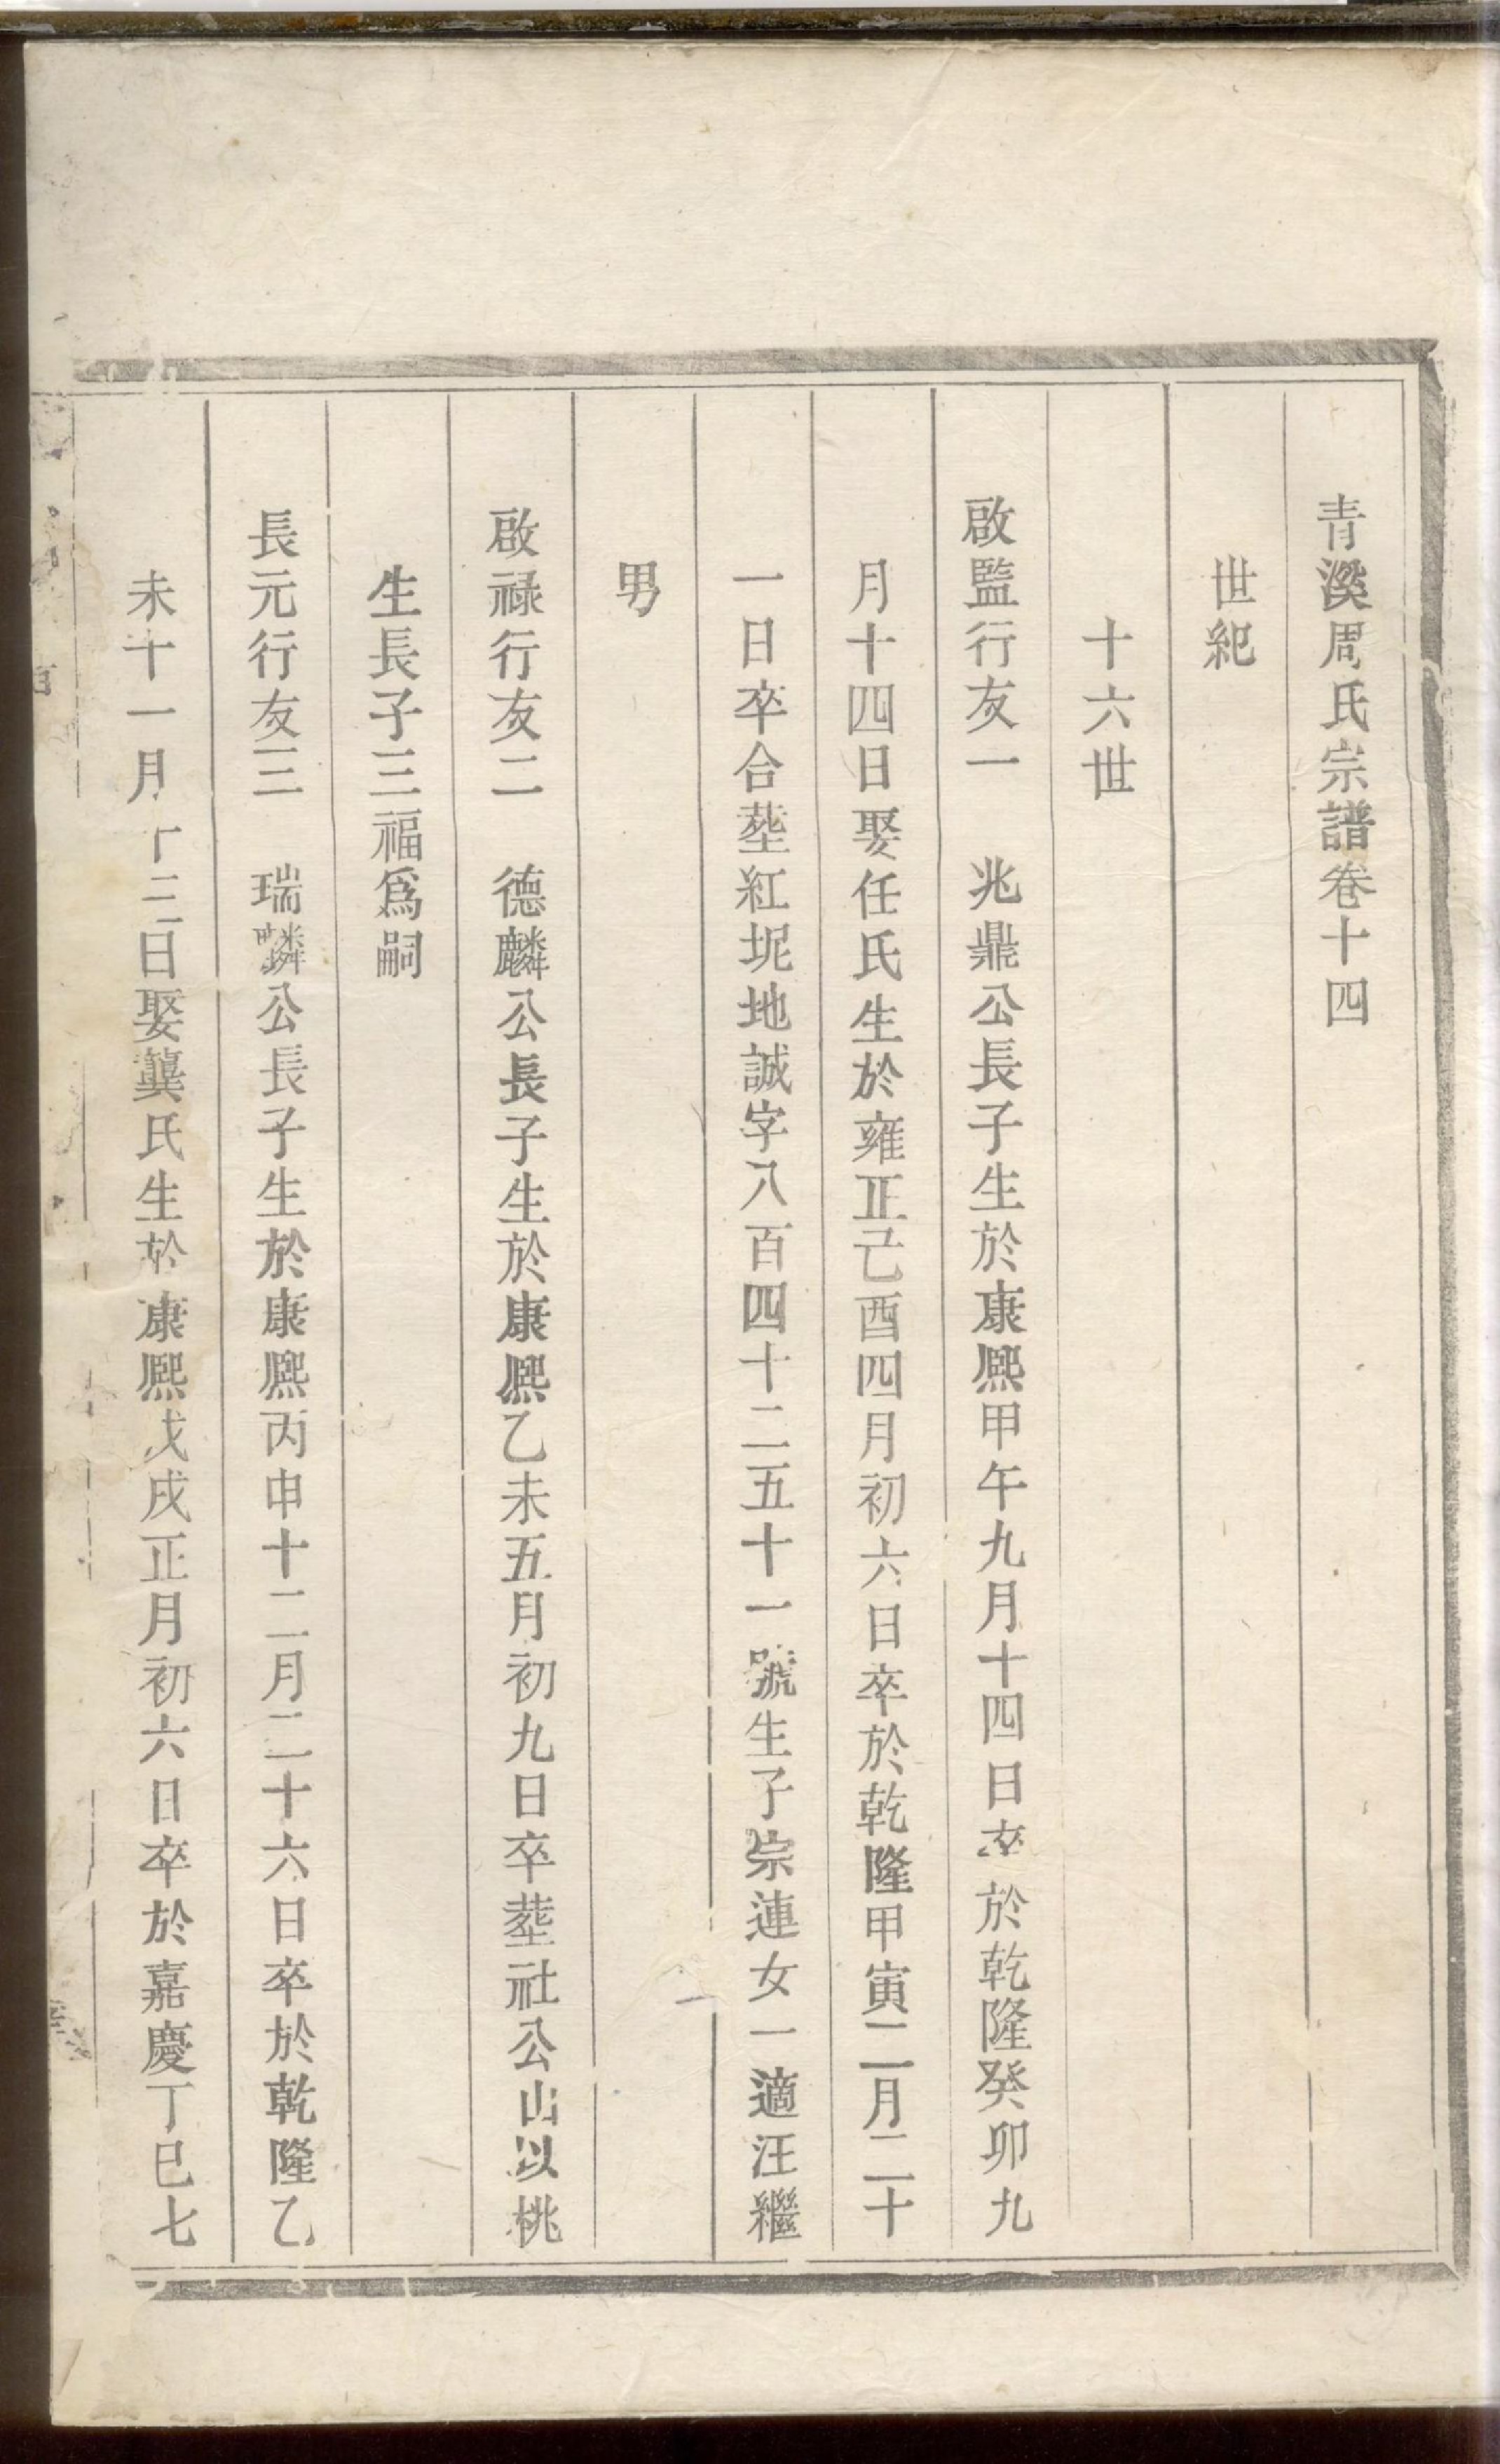 青溪周氏宗譜卷十四
世紀
十六世
啟監行友一　兆鼎公長子生於康熙甲午九月十四日卒於乾隆癸卯九
月十四日娶任氏生於雍正己酉四月初六日卒於乾隆甲寅二月二十
一日卒合塟紅坭地誠字八百四十二五十一號生子崇連女一適汪繼
男
啟祿行友二　德麟公長子生於康熙乙未五月初九日卒塟社公山以桃
生長子三福爲嗣
長元行友三　瑞麟公長子生於康熙丙申十二月二十六日卒於乾隆乙
未十一月十三日娶龔氏生於康熙戊戌正月初六日卒於嘉慶丁巳七